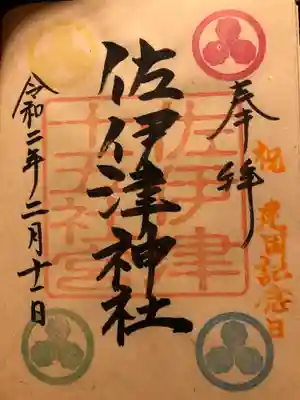 祝 建国記念日
奉拝
佐伊津神社
佐伊津
十五社宮
令和二年二月十一日